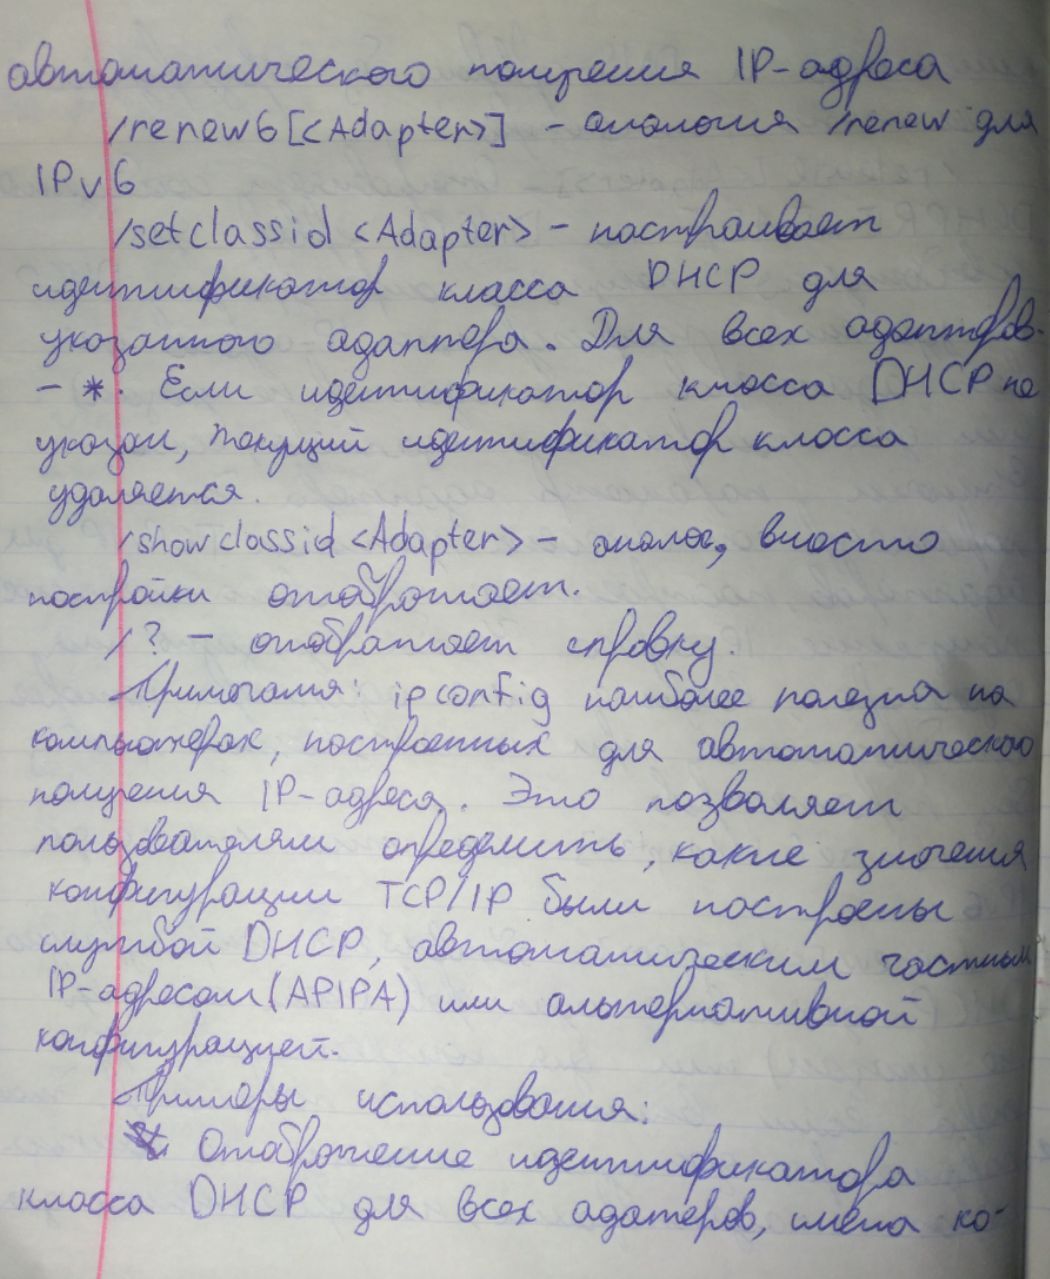 автоматического получения IP-адреса
/renew6[<Adapter>] - аналогия /renew для
IPv6
/setclassid <Adapter> - настраивает
идентификатор класса DHCP для
указанного адаптера. Для всех адаптеров-
- *. Если идентификатор класса DHCP не
указан, текущий идентификатор класса
удаляется.
/showclassid <Adapter> - аналог, вместо
настройки отображает.
/? - отображает справку.
Примечания: ipconfig наиболее полезна на
компьютерах, настроенных для автоматического
получения IP-адреса. Это позволяет
пользователям определить, какие значения
конфигурации TCP/IP были настроены
службой DHCP, автоматическим частным
IP-адресом (APIPA) или альтернативной
конфигурацией.
Примеры использования:
Отображение идентификатора
класса DHCP для всех адатеров, имена ко-